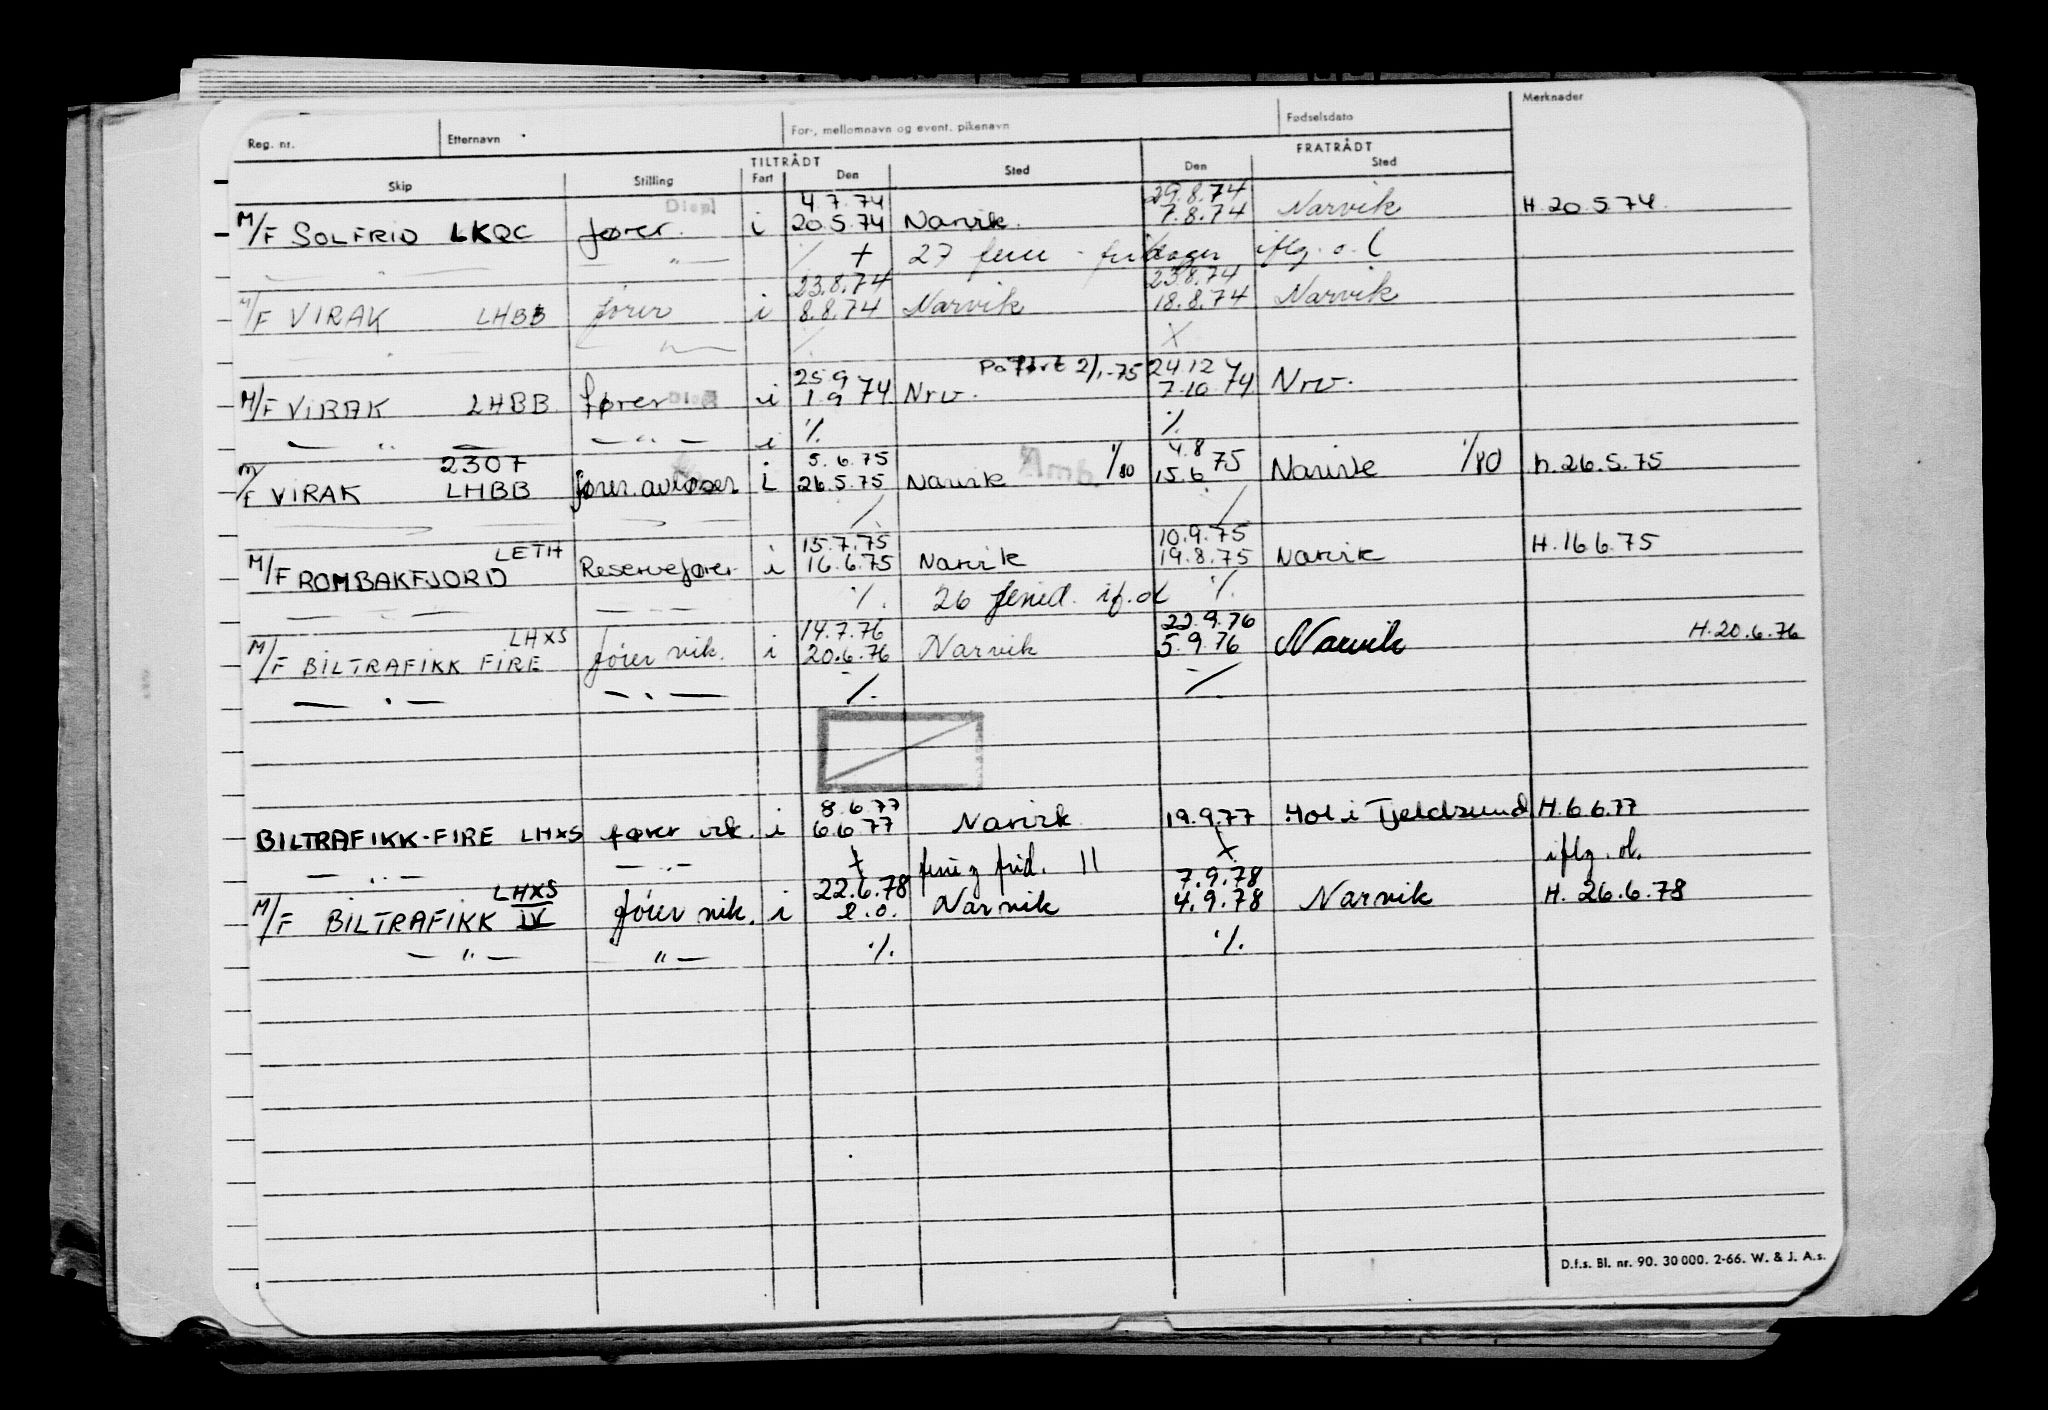 Reg. nr. Etternavn For-, mellomnavn og event. pikenavn Fødselsdato Merknader
TILTRÅDT FRATRÅDT
Skip Stilling Fart Den Sted Den Sted
Displ 4.7.74 29.8.74
M/F SOLFRID LKQC fører. i 20.5.74 Narvik. 7.8.74 Narvik H.20.5.74.
— " — + 27 ferie - fridager iflg. o.l
23.8.74 23.8.74
M/F VIRAK LHBB fører i 8.8.74 Narvik 18.8.74 Narvik
X
25.9 2/1-75 24.12
M/F VIRAK LHBB. fører i 1.9 74 Nrv. 7.10 74 Nrv.
— " — — " — i % %
2307 5.6.75 Amb 1/80 4.8 1/80
M/F VIRAK LHBB fører. avløser i 26.5.75 Narvik 15.6 75 Narvik h.26.5.75
LETH 15.7.75 10.9.75
M/F ROMBAKFJORD Reservefører i 16.6.75 Narvik 19.8.75 Narvik H.16.6.75
%. 26 feried. if.ol %.
LHXS 14.7.76 22.9.76
M/F BILTRAFIKK FIRE fører vik. i 20.6.76 Narvik 5.9.76 Narvik H.20.6.76
— " — — " — %. %
8.6.77
BILTRAFIKK-FIRE LHXS fører vik. i 6.6.77 Narvik 19.9.77 Hol i Tjeldsund H.6.6.77
— " — — " — + ferie g frid. 11 X iflg. ol.
LHXS 22.6.78 7.9.78
M/F BILTRAFIKK IV fører vik. i e.o. Narvik 4.9.78 Narvik H. 26.6.78
— " — " — %. %.
D.f.s. Bl. nr. 90. 30 000. 2-66. W. & J. A.s.